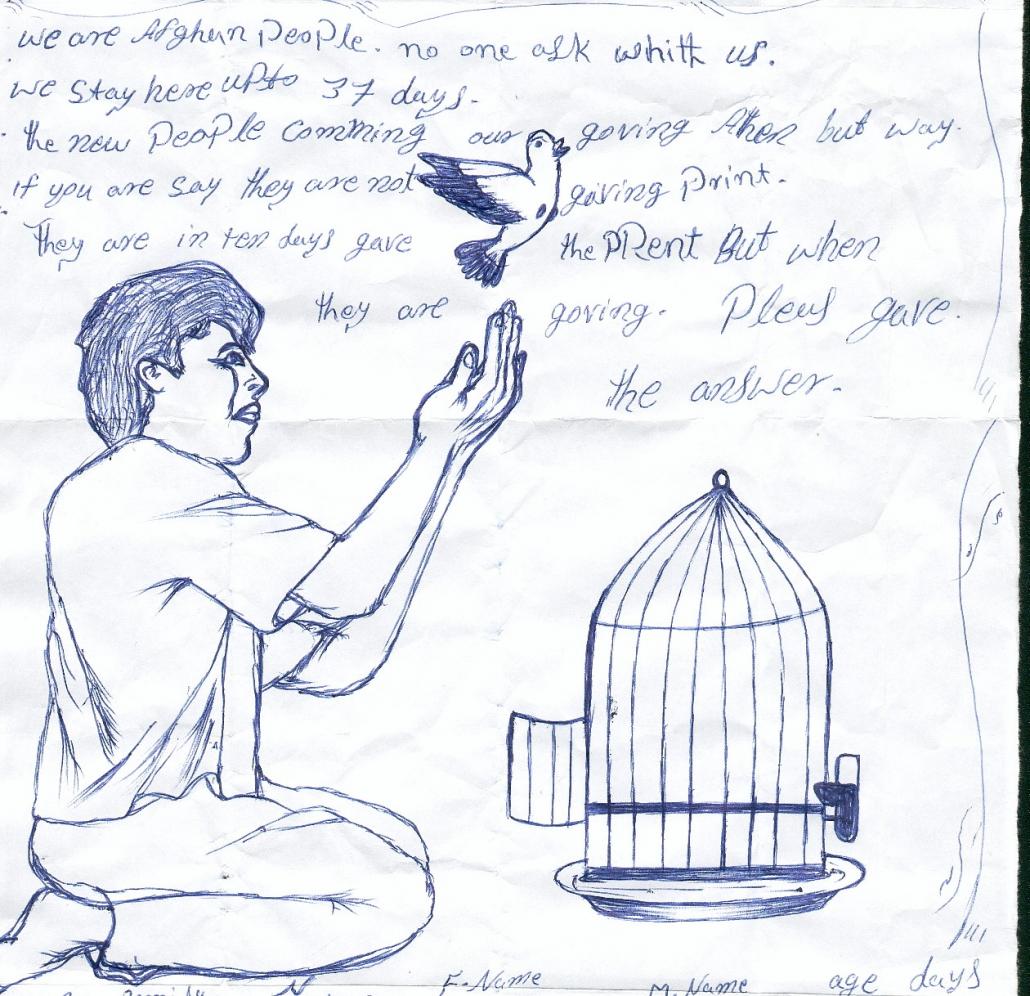 we are Afghan people. no one ask whith us.
we stay here upto 37 days.
the new people comming our goving Ather but way.
if you are say they are not gaving print.
They are in ten days gave the PRent But when
they are goving. Pleas gave.
the answer.
F.Name M.Name age days